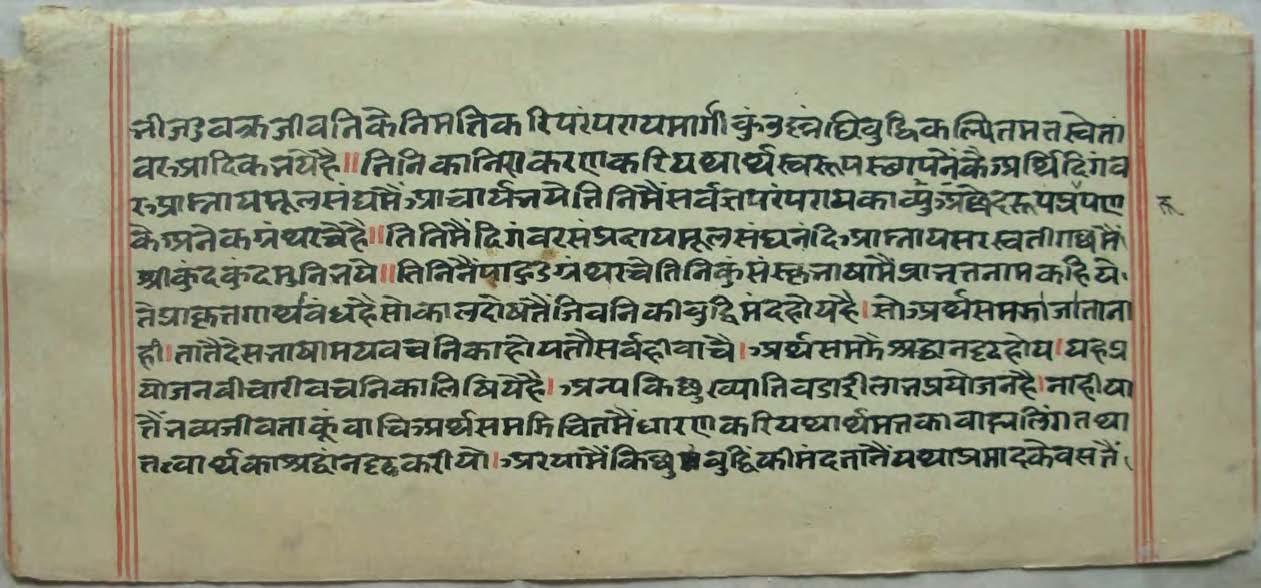 भी जड वक्र जीवनिके निमत्ति करि परंपराय मार्गी कुं उलंघि बुद्धि कल्पित मत स्वेतां
वर आदिक भयेहै॥ तिनिका निराकरण करि यथार्थ स्वरूप स्थापनेंकै अर्थि दिगंव
र आम्नाय मूलसंघमैं आचार्य भये तिनिमैं सर्वज्ञ परंपरायका अछेदरूप प्ररूपण
के अनेक ग्रंथ रचेहै॥ तिनिमैं दिगंवर संप्रदाय मूलसंघ नंदि आम्नाय सरस्वती गछमैं
श्री कुंदकुंद मुनि भये॥ तिनिनैं पाहुड ग्रंथ रचे तिनिकुं संस्कृत भाषामैं प्राभृत नाम कहिये
ते प्राकृत गाथा वंध है सो काल दोषतैं जिवनिकी बुद्धि मंद होय है। सो अर्थ समझा जाता ना
ही। तातै देस भाषामय वचनिका होय तौ सर्व ही वाचै। अर्थ समझै श्रद्धान दृढ होय। यह प्र
योजन वीचारी वचनिका लिषिये है। अन्य किछु ख्याति वडाई लाभ प्रयोजन है। नाही या
तैं भव्य जीव ताकूं वाचि अर्थ समझि चितमैं धारण करि यथार्थ मतका वाह्यलिंग तथा
तत्वार्थका श्रद्धांन दृढ करीयो। अर यामैं किछु बुद्धिकी मंदतातैं यथा प्रमादके वसतैं